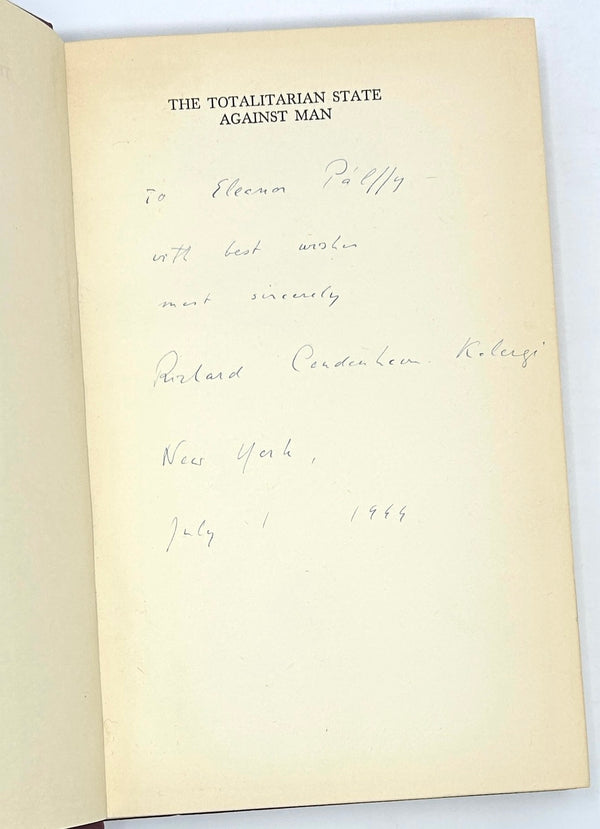 THE TOTALITARIAN STATE
AGAINST MAN
To Eleanor Pálffy –
with best wishes
most sincerely
Richard Coudenhove-Kalergi
New York,
July 1 1944